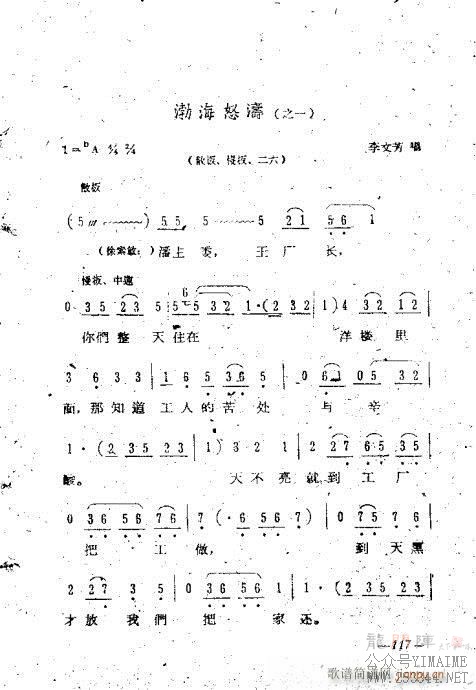 渤海怒濤(之一)
1=ᵇA 4/4 2/4
(散板、慢板、二六)
李文芳 唱
散板
(5 〰 ) 5 5 〰 5 2 1 5 6 1
(徐素敏:)潘主委,王厂长,
慢板、中速
0 3 5 2 3 5 5 5 3 2 1·(2 3 2 1) 4 3 2 1
你們整天住在 洋楼里
3 6 3 3 1 6 5 3 6 3 0 1 6 2 0 5 3 2
面,那知道工人的苦处与辛
1·(2 3 5 2 3 1) 3 2 1 1 6 5 5 6 7 6
酸。 天不亮就到工厂
0 3 6 5 6 7 6 7(· 6 5 6 7) 0 7 5 7 6
把工做, 到天黑
2 2 7 3 5 0 3 6 5 6 1 1(2 3 5 2 3 1)
才放我們把家还。
— 117 —
龍門陣
歌谱简谱网
公众号YIMAIME